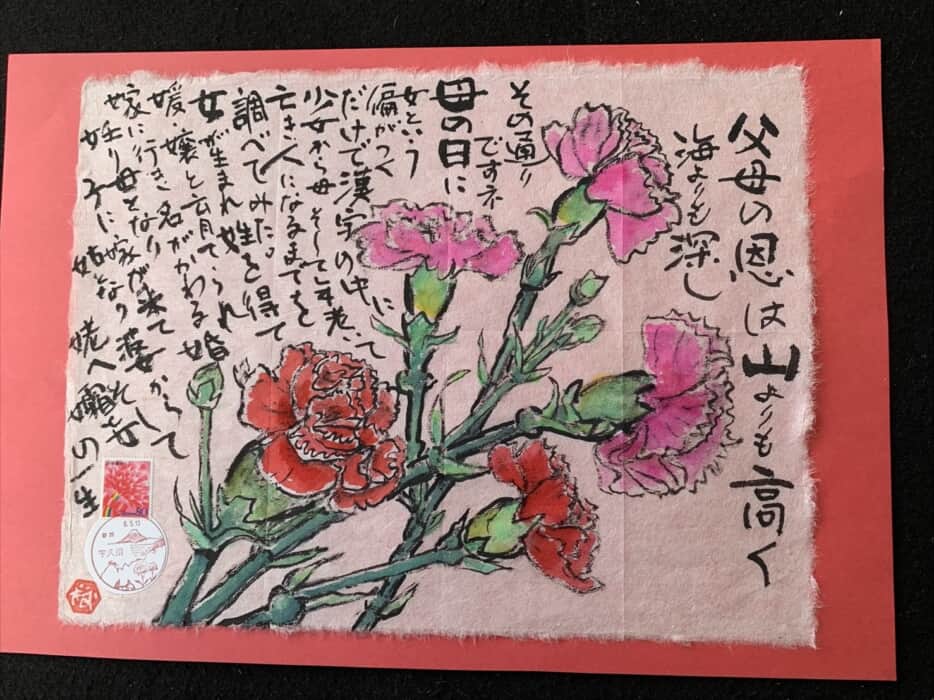 父母の恩は山よりも高く
海よりも深し
その通り
ですネ
母の日に
女という
偏がつく
だけで漢字の中にて
少女から母そして年老い
亡き人になるまでを
調べてみた。
女が生まれ姓を得て
媛 嬢と育てられ 婚
嫁に行き名がかわる
妊り母となり嫁が来て
子に 姑となり 姥へ 女の一生
6.5.12